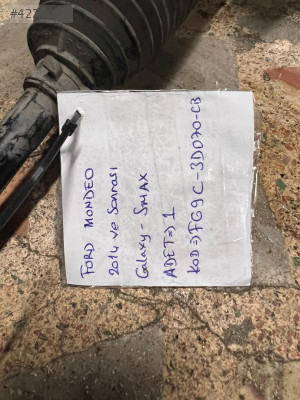 #427
FORD MONDEO
2014 ve Sonrası
Galaxy - SMAX
ADET=) 1
KOD=) FG9C-3D070-CB